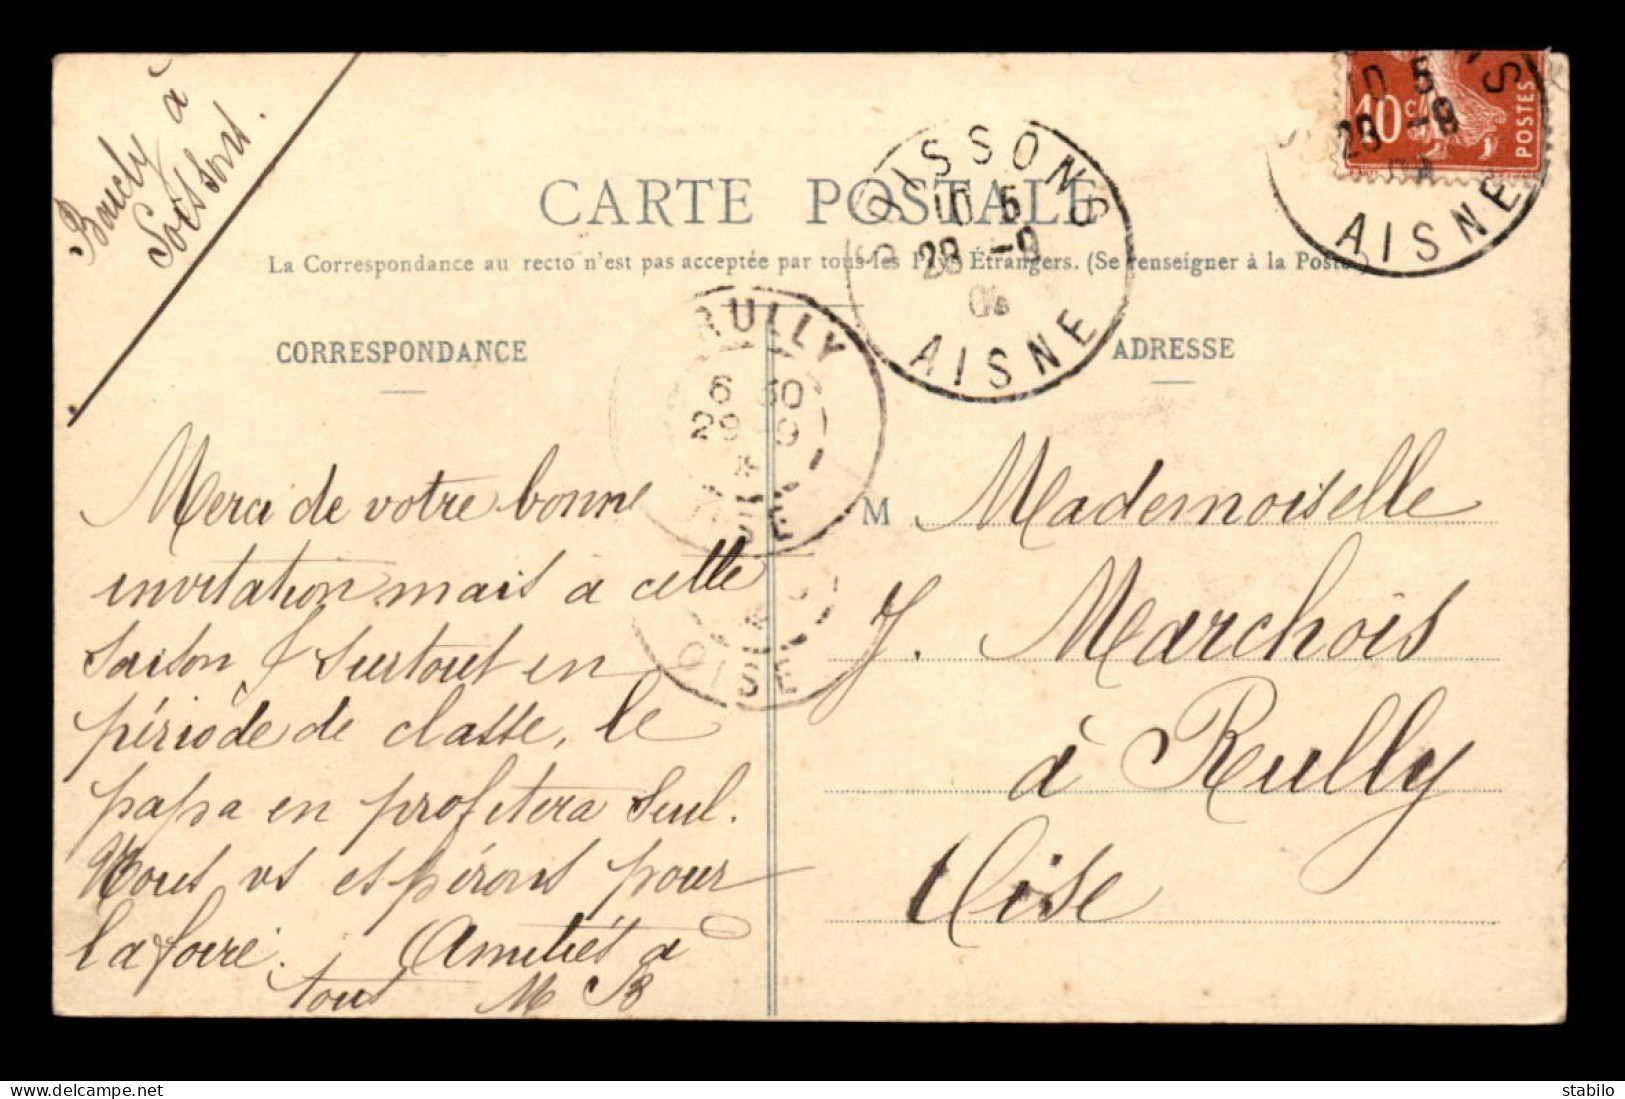 Boucly à
Soissons.
CARTE POSTALE
La Correspondance au recto n'est pas acceptée par tous les Pays Étrangers. (Se renseigner à la Poste.)
CORRESPONDANCE
ADRESSE
Merci de votre bonne
invitation mais à cette
saison, & surtout en
période de classe, le
papa en profitera seul.
Nous vs espérons pour
la foire. Amitiés à
tous M B
M Mademoiselle
J. Marchois
à Rully
Oise
SOISSONS
10 5
28 -9
AISNE
RULLY
6 30
29 9
OISE
OISE
10 5
28 -9
AISNE
10 c
POSTES
stabilo
www.delcampe.net